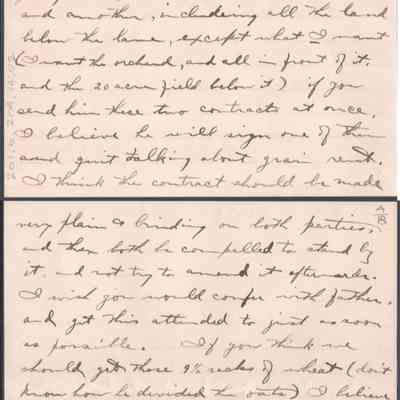 and another, includeing all the land
below the lane, except what I want
(I want the orchard, and all in front of it,
and the 20 acre field below it) if you
send him these two contracts at once,
I believe he will sign one of them
and quit talking about grain rent.
I think the contract should be made
A/B
very plain & binding on both parties,
and then both be compelled to stand by
it, and not try to amend it afterwards.
I wish you would confer with father,
and get this attended to just as soon
as possible. If you think we
should get those 9½ sacks of wheat (don't
know how he divided the oats) I believe